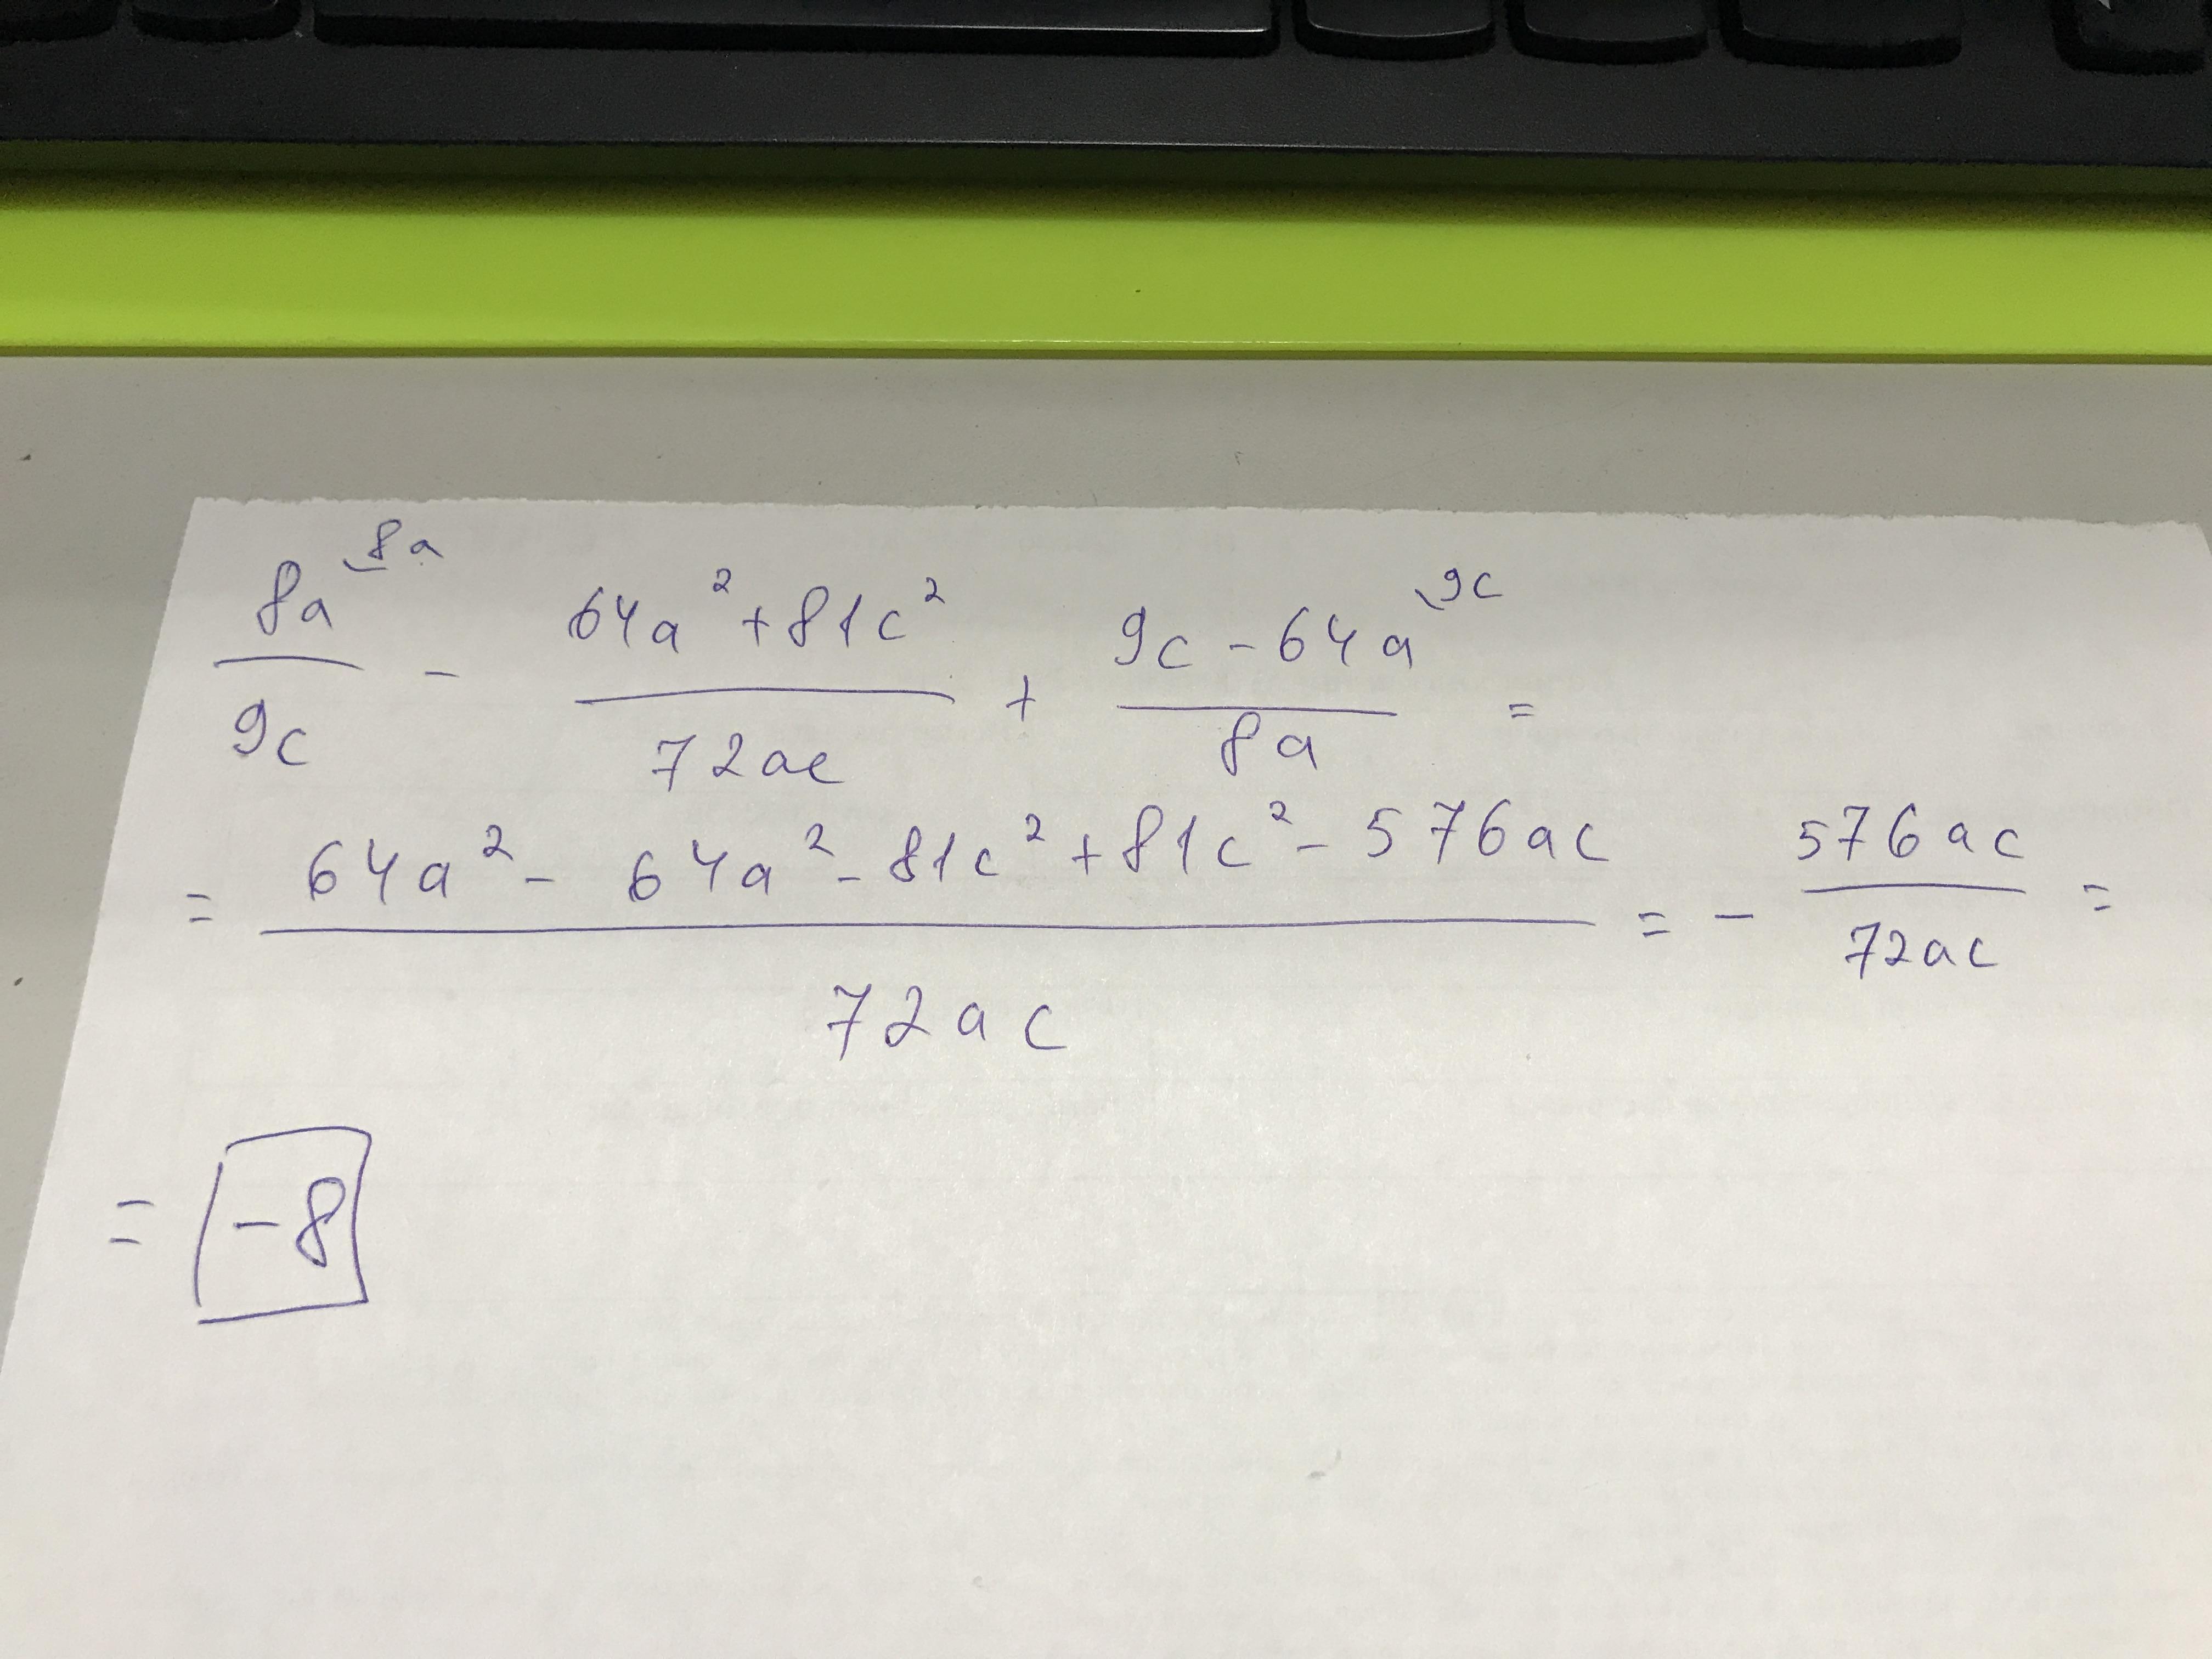 8a/9c ⌣8a - (64a² + 81c²)/72ac + (9c - 64a)/8a ⌣9c =
= (64a² - 64a² - 81c² + 81c² - 576ac)/72ac = - 576ac/72ac =
= -8